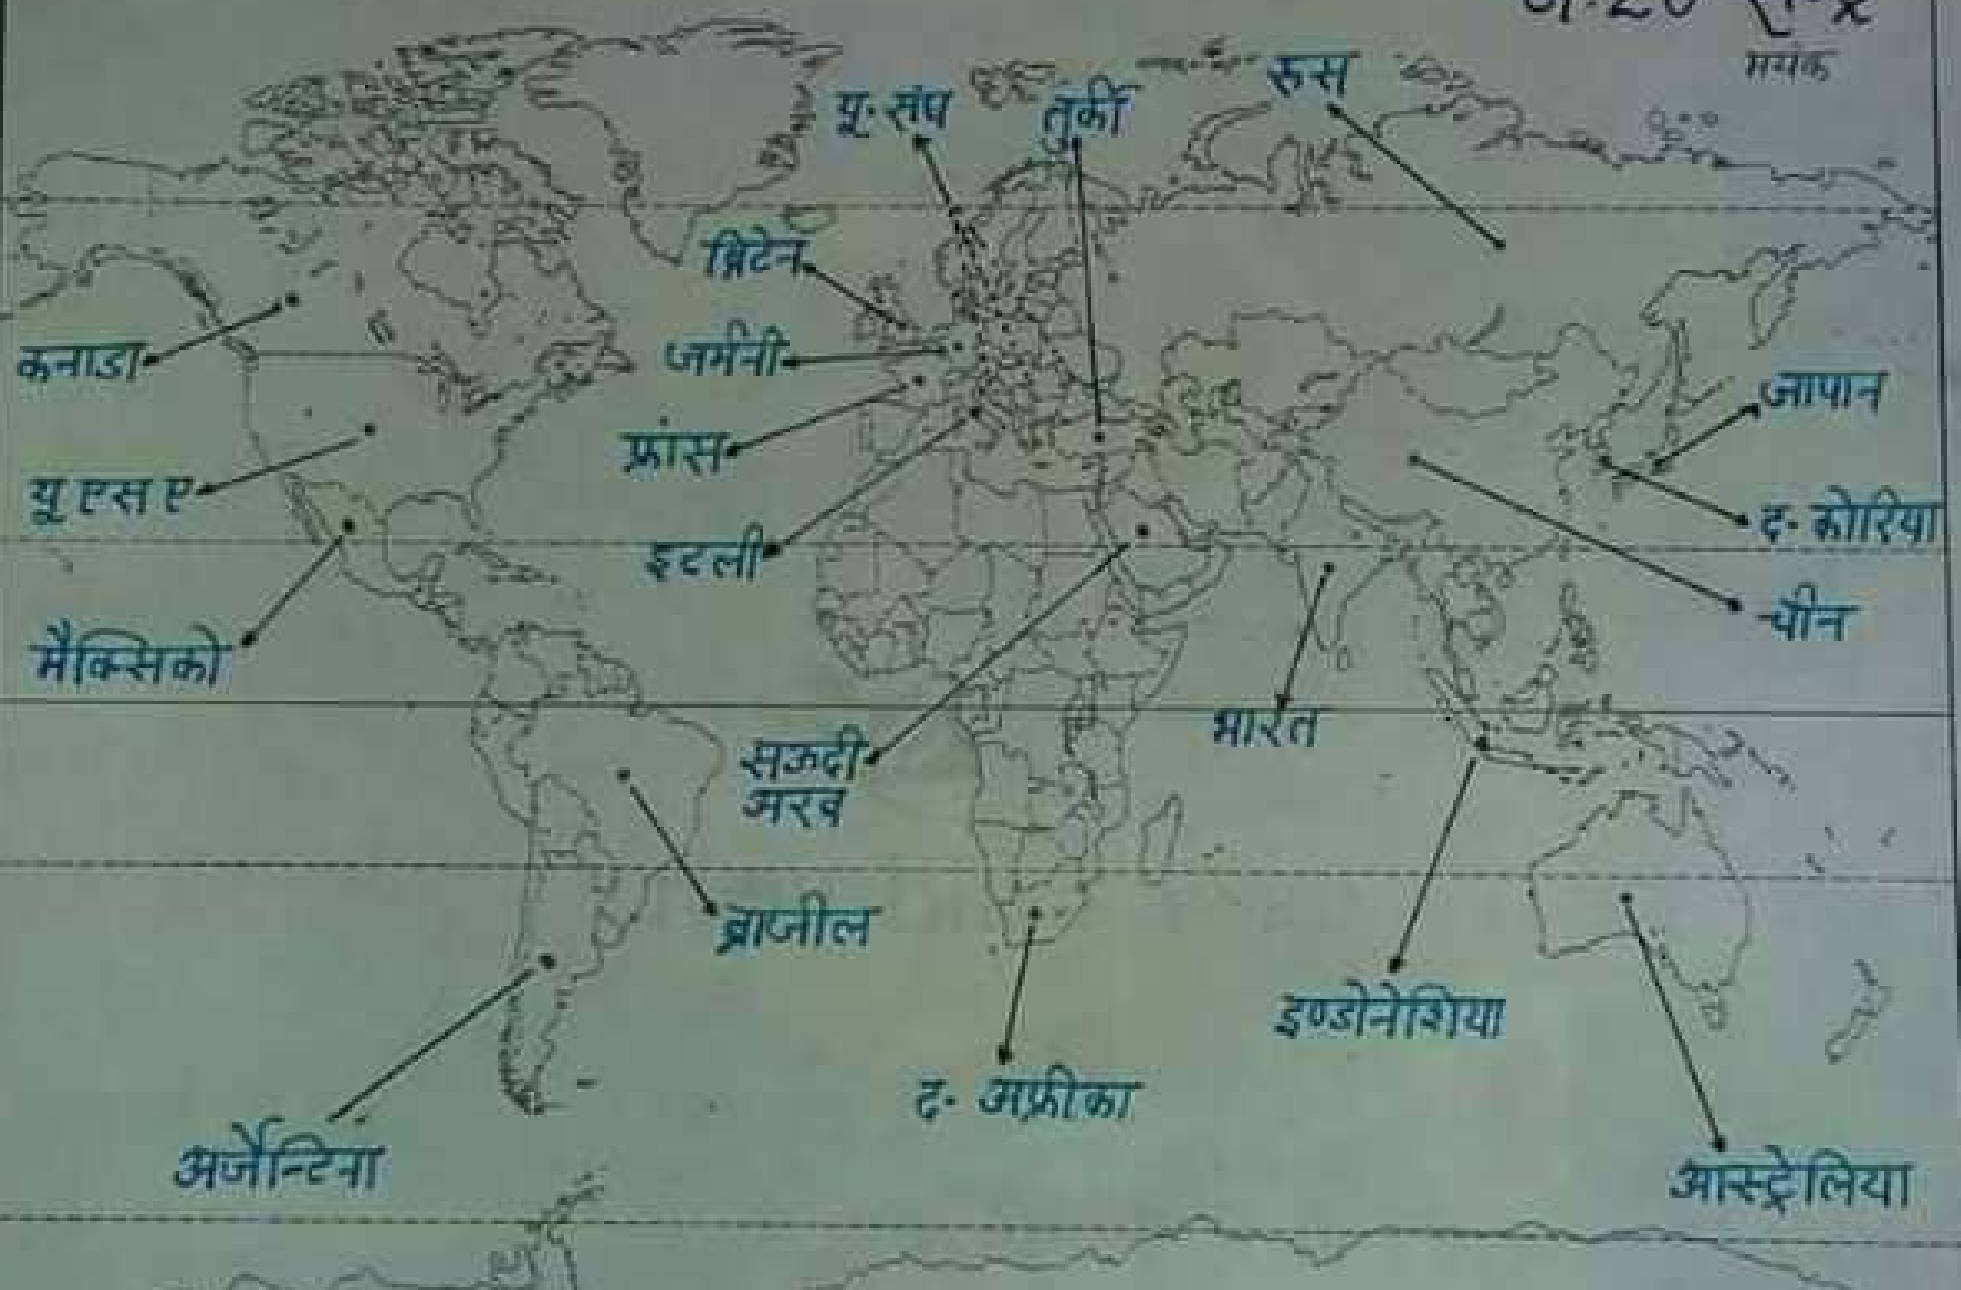 मयंक
रुस
यू॰ संघ
तुर्की
ब्रिटेन
कनाडा
जर्मनी
जापान
फ्रांस
यू एस ए
द॰ कोरिया
इटली
चीन
मैक्सिको
भारत
सऊदी
अरब
ब्राजील
इण्डोनेशिया
द॰ अफ्रीका
अर्जेन्टिना
आस्ट्रेलिया